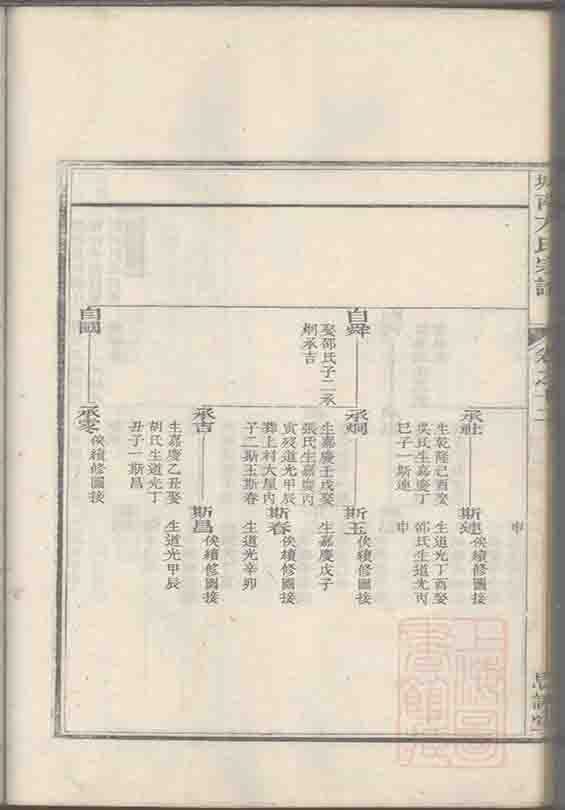 城南方氏宗譜
卷之十二
思訓堂
申
承壯
生乾隆己酉娶
吳氏生嘉慶丁
巳子一斯連
斯連
俟續修圖接
生道光丁酉娶
邵氏生道光丙
申
自舜
娶邵氏子二承
炯承吉
承炯
生嘉慶壬戌娶
張氏生嘉慶丙
寅歿道光甲辰
葬上村大屋內
子二斯玉斯春
斯玉
俟續修圖接
生嘉慶戊子
斯春
俟續修圖接
生道光辛卯
承吉
生嘉慶乙丑娶
胡氏生道光丁
丑子一斯昌
斯昌
俟續修圖接
生道光甲辰
自國
承零
俟續修圖接
上海圖書館藏